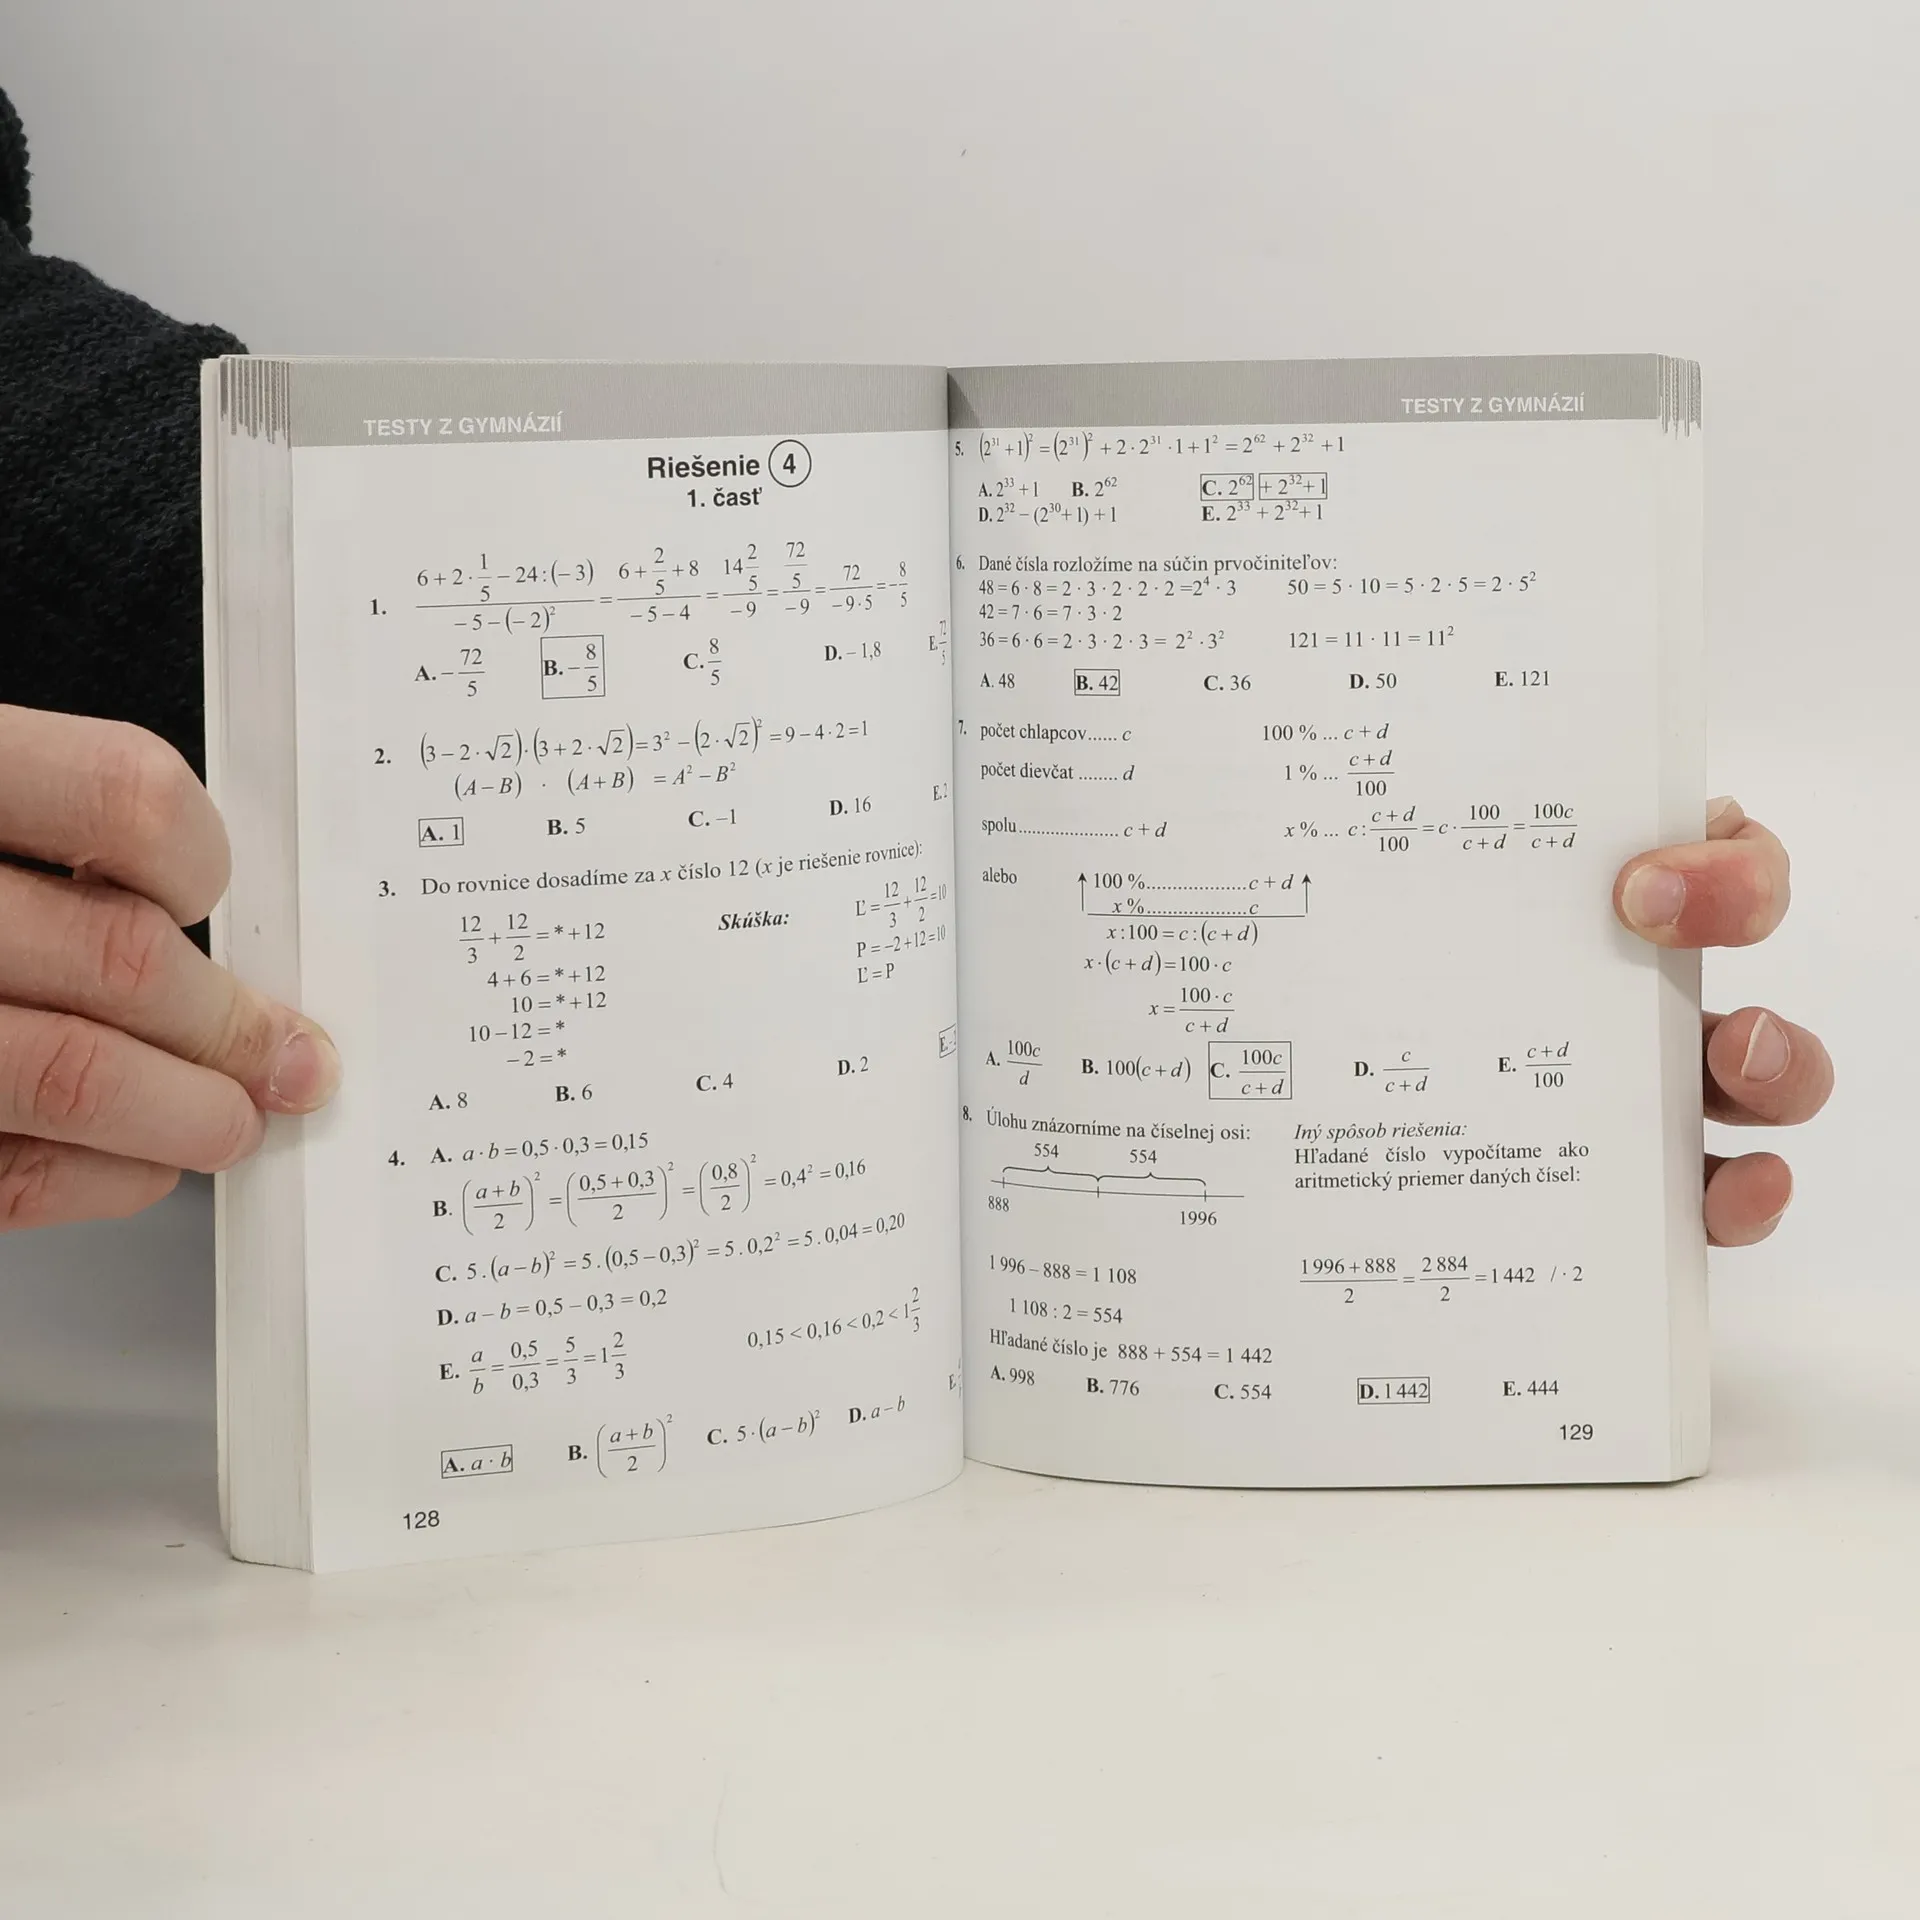 TESTY Z GYMNÁZIÍ
Riešenie 4
1. časť
1. (6+2·1/5−24:(−3))/(−5−(−2)²) = (6+2/5+8)/(−5−4) = (14 2/5)/(−9) = (72/5)/(−9) = 72/(−9·5) = −8/5
A. −72/5 B. −8/5 C. 8/5 D. −1,8 E. 72/5
2. (3−2·√2)·(3+2·√2)=3²−(2·√2)²=9−4·2=1
(A−B) · (A+B) =A²−B²
A. 1 B. 5 C. −1 D. 16 E. 2
3. Do rovnice dosadíme za x číslo 12 (x je riešenie rovnice):
12/3+12/2=*+12 Skúška: Ľ=12/3+12/2=10
4+6=*+12 P=−2+12=10
10=*+12 Ľ=P
10−12=*
−2=*
A. 8 B. 6 C. 4 D. 2 E.
4. A. a·b=0,5·0,3=0,15
B. ((a+b)/2)²=((0,5+0,3)/2)²=(0,8/2)²=0,4²=0,16
C. 5.(a−b)²=5.(0,5−0,3)²=5.0,2²=5.0,04=0,20
D. a−b=0,5−0,3=0,2
E. a/b=0,5/0,3=5/3=1 2/3 0,15<0,16<0,2<1 2/3
A. a·b B. ((a+b)/2)² C. 5·(a−b)² D. a−b E.
128
TESTY Z GYMNÁZIÍ
5. (2³¹+1)²=(2³¹)²+2·2³¹·1+1²=2⁶²+2³²+1
A. 2³³+1 B. 2⁶² C. 2⁶²+2³²+1
D. 2³²−(2³⁰+1)+1 E. 2³³+2³²+1
6. Dané čísla rozložíme na súčin prvočiniteľov:
48=6·8=2·3·2·2·2=2⁴·3 50=5·10=5·2·5=2·5²
42=7·6=7·3·2
36=6·6=2·3·2·3= 2²·3² 121=11·11=11²
A. 48 B. 42 C. 36 D. 50 E. 121
7. počet chlapcov...... c 100 % ... c+d
počet dievčat ........ d 1 % ... (c+d)/100
spolu.................... c+d x % ... c:(c+d)/100=c·100/(c+d)=100c/(c+d)
alebo 100 %...................c+d
x %....................c
x:100=c:(c+d)
x·(c+d)=100·c
x=100·c/(c+d)
A. 100c/d B. 100(c+d) C. 100c/(c+d) D. c/(c+d) E. (c+d)/100
8. Úlohu znázorníme na číselnej osi: Iný spôsob riešenia:
554 554 Hľadané číslo vypočítame ako
888 1996 aritmetický priemer daných čísel:
1 996−888=1 108 (1 996+888)/2=2 884/2=1 442 /·2
1 108:2=554
Hľadané číslo je 888+554=1 442
A. 998 B. 776 C. 554 D. 1 442 E. 444
129